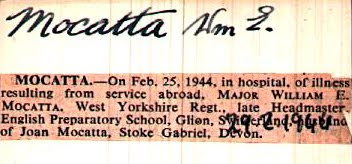 Mocatta Wm E.
MOCATTA.—On Feb. 25, 1944, in hospital, of illness
resulting from service abroad, MAJOR WILLIAM E.
MOCATTA, West Yorkshire Regt., late Headmaster
English Preparatory School, Glion, Switzerland, husband
of Joan Mocatta, Stoke Gabriel, Devon.